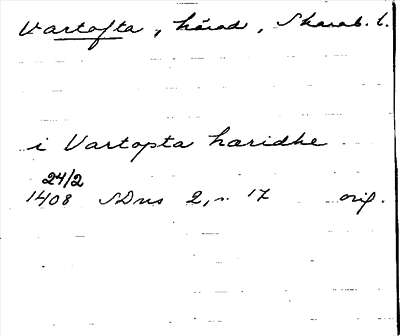 Vartofta, härad, Skarab. l.
i Vartopta hæridhe
24/2
1408 SDns 2, n. 17 orig.